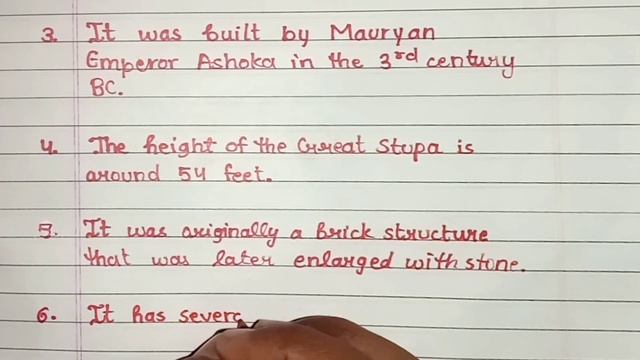 3. It was built by Mauryan
Emperor Ashoka in the 3rd century
BC.
4. The height of the Great Stupa is
around 54 feet.
5. It was originally a brick structure
that was later enlarged with stone.
6. It has severa